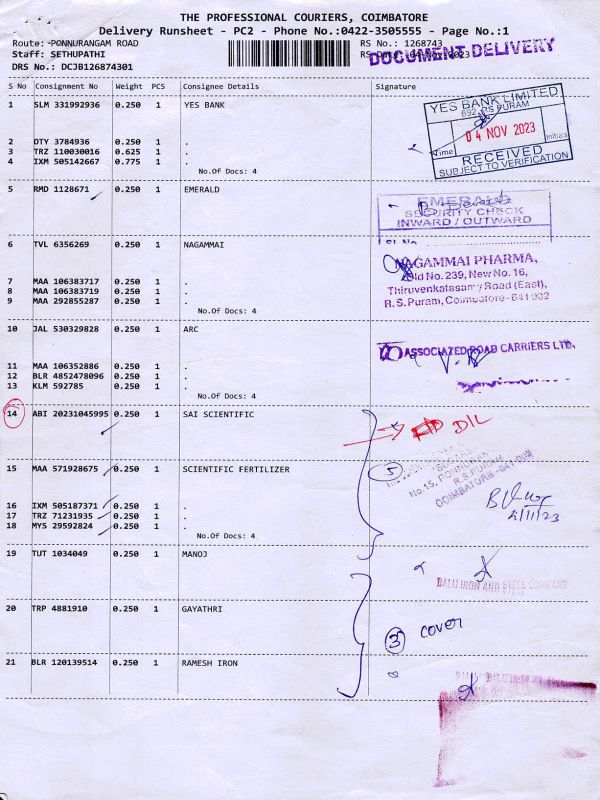 THE PROFESSIONAL COURIERS, COIMBATORE
Delivery Runsheet - PC2 - Phone No.:0422-3505555 - Page No.:1
Route: PONNURANGAM ROAD
RS No.: 1268743
Staff: SETHUPATHI
DOCUMENT DELIVERY
DRS No.: DCJB126874301
S No Consignment No Weight PCS Consignee Details Signature
1 SLM 331992936 0.250 1 YES BANK
YES BANK LIMITED
692, RS PURAM
04 NOV 2023
Time Initials
RECEIVED
SUBJECT TO VERIFICATION
2 DTY 3784936 0.250 1 .
3 TRZ 110030016 0.625 1 .
4 IXM 505142667 0.775 1 .
No.Of Docs: 4
5 RMD 1128671 0.250 1 EMERALD
EMERALD
SECURITY CHECK
INWARD / OUTWARD
Sl No
6 TVL 6356269 0.250 1 NAGAMMAI
NAGAMMAI PHARMA,
Old No. 239, New No. 16,
Thiruvenkatasamy Road (East),
R.S. Puram, Coimbatore - 641 002
7 MAA 106383717 0.250 1 .
8 MAA 106383719 0.250 1 .
9 MAA 292855287 0.250 1 .
No.Of Docs: 4
10 JAL 530329828 0.250 1 ARC
ASSOCIATED ROAD CARRIERS LTD.
11 MAA 106352886 0.250 1 .
12 BLR 4852478096 0.250 1 .
13 KLM 592785 0.250 1 .
No.Of Docs: 4
14 ABI 20231045995 0.250 1 SAI SCIENTIFIC
D/L
15 MAA 571928675 0.250 1 SCIENTIFIC FERTILIZER
5
R.S. PURAM
COIMBATORE-641 002
4/11/23
16 IXM 505187371 0.250 1 .
17 TRZ 71231935 0.250 1 .
18 MYS 29592824 0.250 1 .
No.Of Docs: 4
19 TUT 1034049 0.250 1 MANOJ
BALU IRON AND STEEL COMPANY
20 TRP 4881910 0.250 1 GAYATHRI
3 COVER
21 BLR 120139514 0.250 1 RAMESH IRON